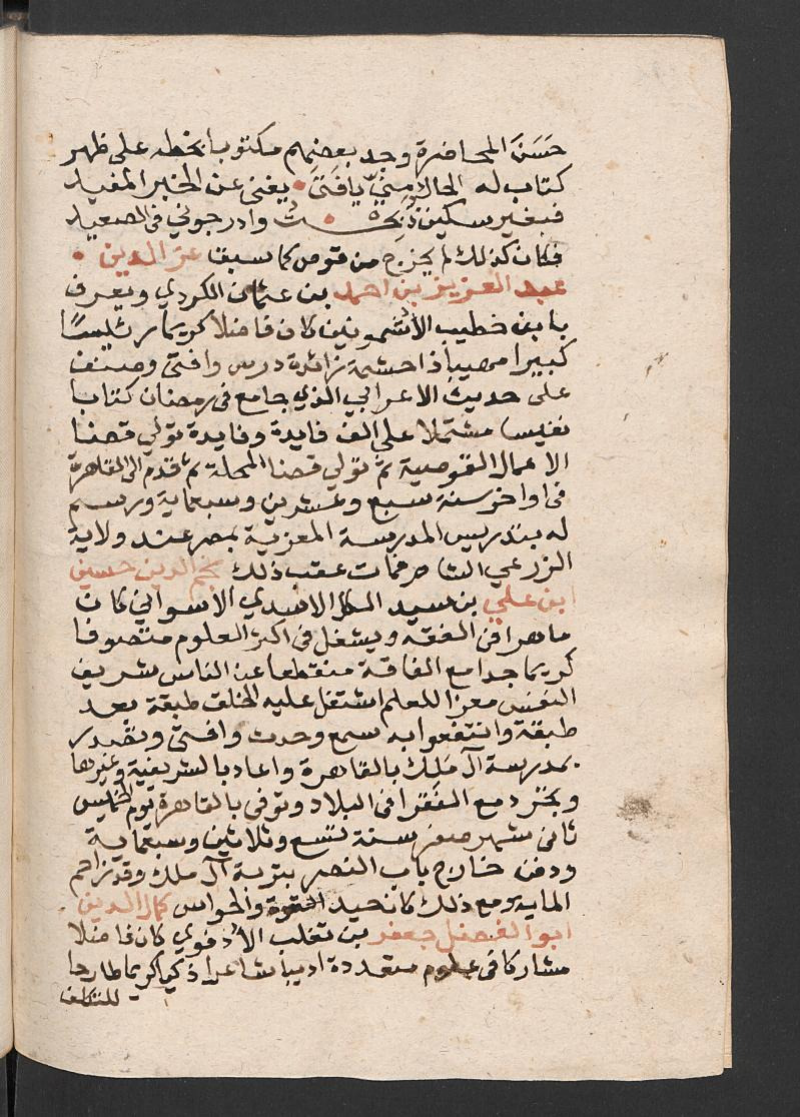 حَسَنَ المحاضرة وجد بعضهم مكتوبا بخطه على ظهر
كتاب له الحال مِنّي يا فَتَى • يغنى عن الخبر المفيد
فبغير سكين ذُبِحْتُ • وادرجوني في الصعيد
فكان كذلك لم يخرج من قوص كما سبق عز الدين •
عبد العزيز بن احمد بن عثمان الكردي ويعرف
بابن خطيب الأشمونين كان فاضلا كريما رئيسًا
كبيرا مهيبا ذا حشمة زائدة درس وافتى وصنف
على حديث الاعرابي الذي جامع في رمضان كتابا
نفيسا مشتملا على الف فايدة وفايدة تولي قضا
الاعمال القوصية ثم تولي قضا المحلة ثم قدم الى القاهرة
في اواخر سنة سبع وعشرين وسبعماية ورسم
له بتدريس المدرسة المعزية بمصر عند ولاية
الزرعي الشام فمات عقب ذلك نجم الدين حسين
ابن علي بن سيد الكل الاسدي الأسواني كان
ماهرا في الفقه ويشغل في اكثر العلوم متصوفا
كريما جدا مع الفاقة منقطعا عن الناس شريف
النفس معزا للعلم اشتغل عليه الخلق طبقة بعد
طبقة وانتفعوا به سمع وحدث وافتى وتصدر
بمدرسة آل مَلَك بالقاهرة واعاد بالشريفية وغيرها
وتجرد مع الفقرا في البلاد وتوفى بالقاهرة يوم الخميس
ثاني شهر صفر سنة تسع وثلاثين وسبعماية
ودفن خارج باب النصر بتربة آل ملك وقد زاحم
الماية ومع ذلك كان جيد القوة والحواس كمال الدين
ابو الفضل جعفر بن تغلب الأُدفوي كان فاضلا
مشاركا في علوم متعددة اديبا شاعرا ذكيا كريما طارحا
للتكلف